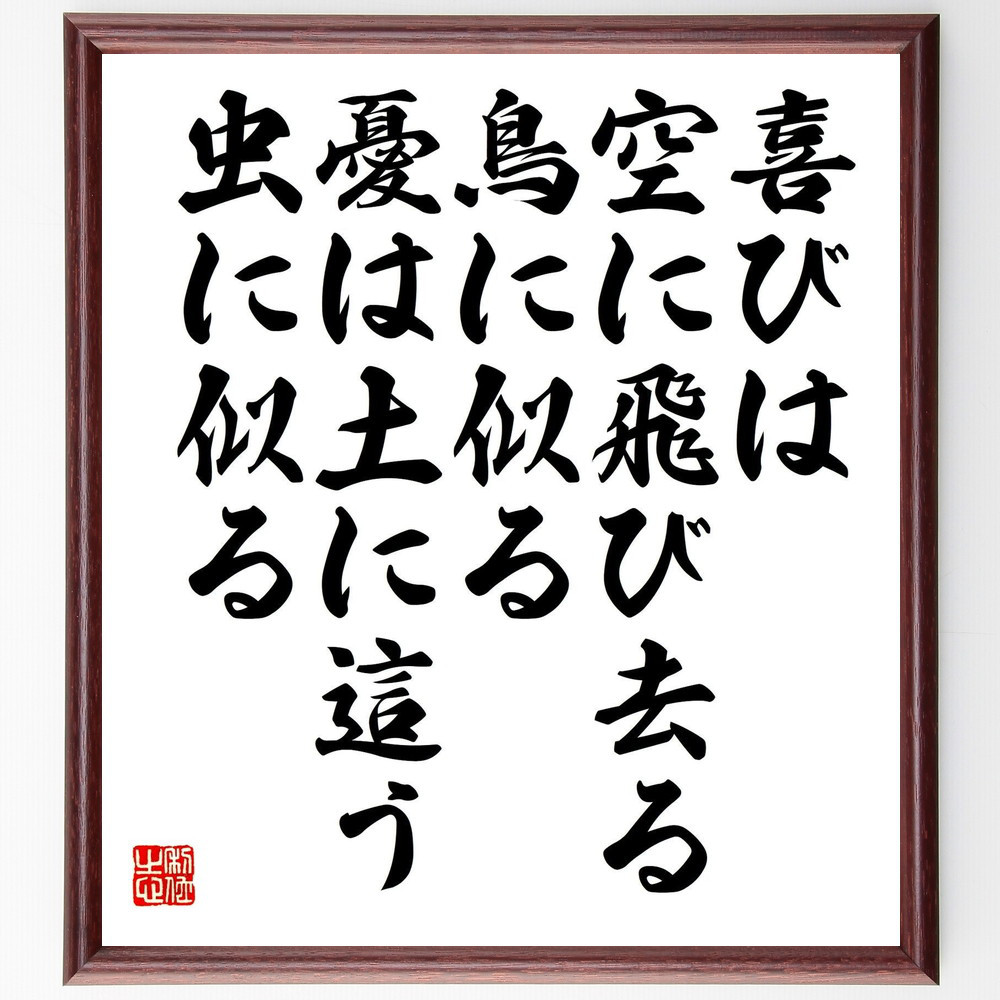 喜びは
空に飛び去る
鳥に似る
憂は土に這う
虫に似る